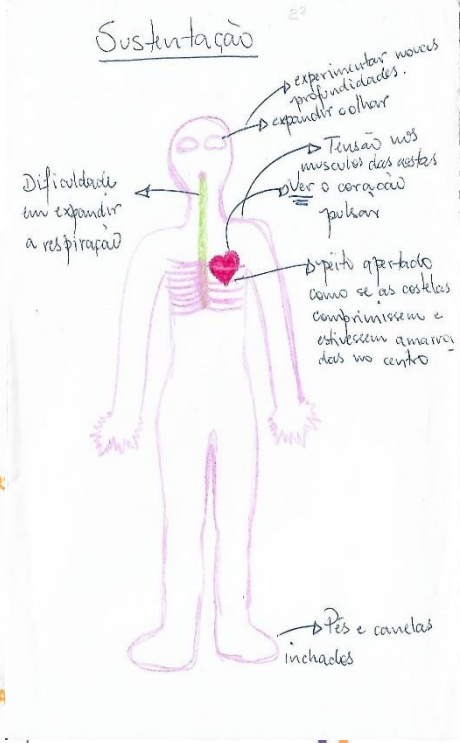 Sustentação
experimentar novas
profundidades.
expandir o olhar
Tensão nos
musculos das costas
Ver o coração
pulsar
Dificuldade
em expandir
a respiração
peito apertado
como se as costelas
comprimissem e
estivessem amarra
das no centro
Pés e canelas
inchados